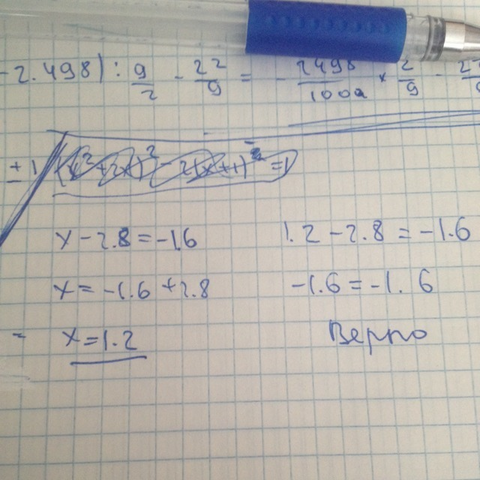 -2.498) : 9/2 - 22/9 = - 2498/1000 × 2/9 - 22/9
± 1 (x²+2x)² - 2(x+1)² = 1
x - 2.8 = -1.6
x = -1.6 + 2.8
= x = 1.2
1.2 - 2.8 = -1.6
-1.6 = -1.6
Верно